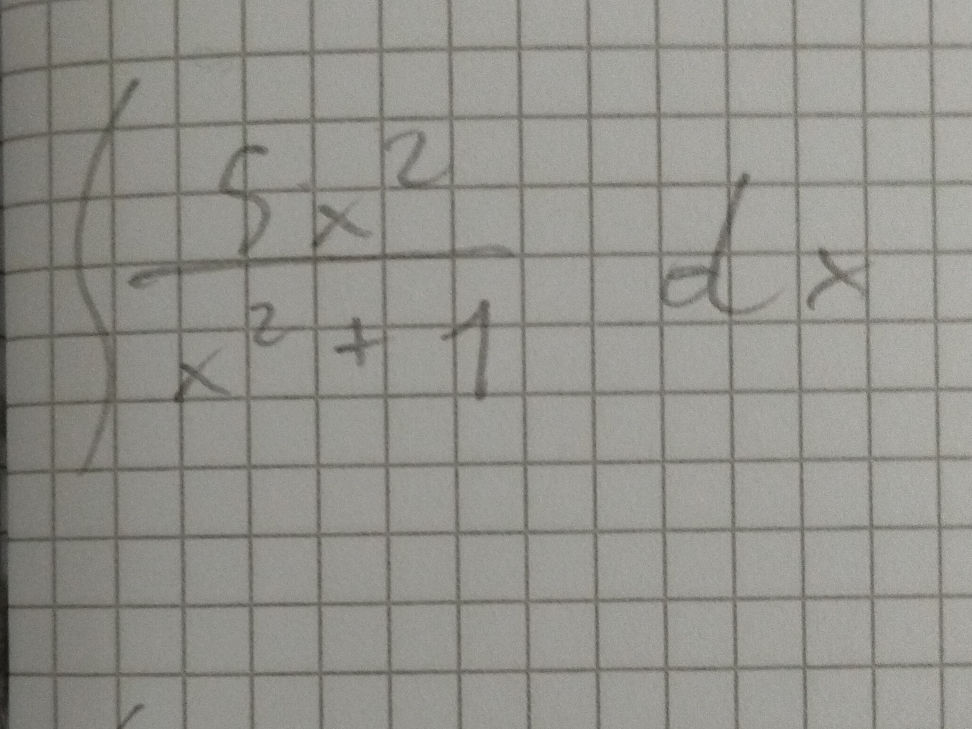 ∫ 5x² / x² + 1 dx